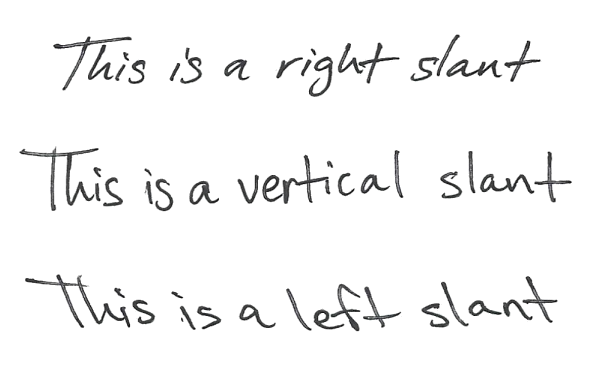 This is a right slant
This is a vertical slant
This is a left slant